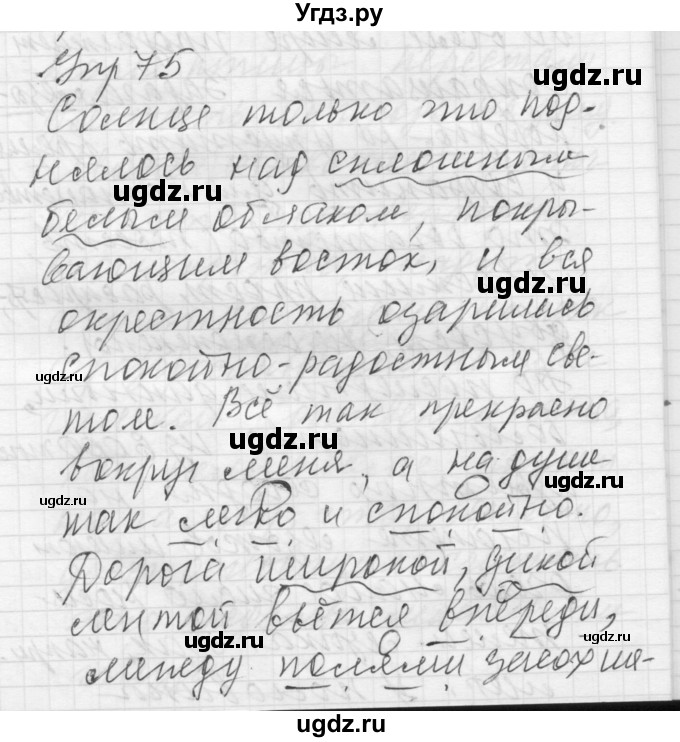 Угдз.ру
Упр 75
Солнце только что под-
нялось над сплошным
белым облаком, покры-
вающим восток, и вся
окрестность озарилась
спокойно-радостным све-
том. Всё так прекрасно
вокруг меня, а на душе
так легко и спокойно.
Дорога широкой, дикой
лентой вьётся впереди,
между полями засохше-
ugdz.ru
ugdz.ru
ugdz.ru
ugdz.ru
ugdz.ru
ugdz.ru
ugdz.ru
ugdz.ru
ugdz.ru
ugdz.ru
ugdz.ru
ugdz.ru
ugdz.ru